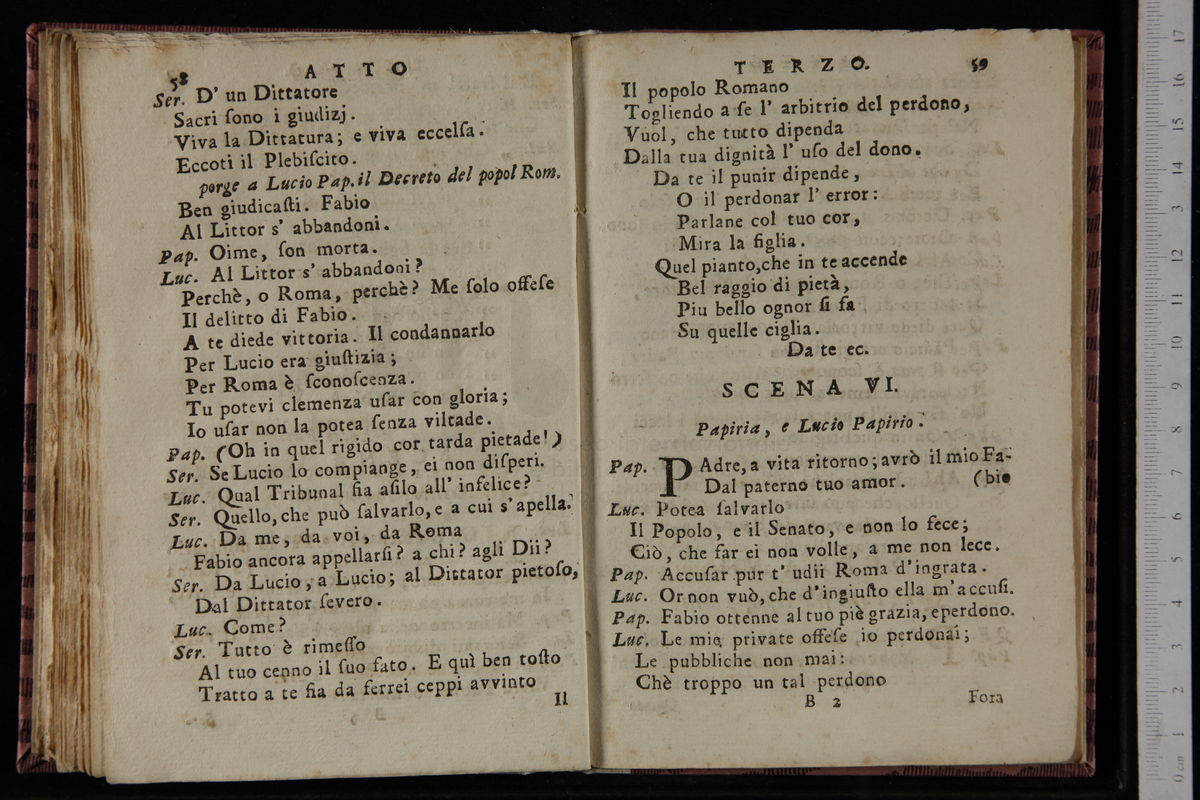 58 ATTO
Ser. D' un Dittatore
Sacri ſono i giudizj.
Viva la Dittatura; e viva eccelſa.
Eccoti il Plebiſcito.
porge a Lucio Pap. il Decreto del popol Rom.
Ben giudicaſti. Fabio
Al Littor s' abbandoni.
Pap. Oime, ſon morta.
Luc. Al Littor s' abbandoni?
Perchè, o Roma, perchè? Me ſolo offeſe
Il delitto di Fabio.
A te diede vittoria. Il condannarlo
Per Lucio era giuſtizia;
Per Roma è ſconoſcenza.
Tu potevi clemenza uſar con gloria;
Io uſar non la potea ſenza viltade.
Pap. (Oh in quel rigido cor tarda pietade!)
Ser. Se Lucio lo compiange, ei non diſperi.
Luc. Qual Tribunal ſia aſilo all' infelice?
Ser. Quello, che può ſalvarlo, e a cui s' apella.
Luc. Da me, da voi, da Roma
Fabio ancora appellarſi? a chi? agli Dii?
Ser. Da Lucio, a Lucio; al Dittator pietoſo,
Dal Dittator ſevero.
Luc. Come?
Ser. Tutto è rimeſſo
Al tuo cenno il ſuo fato. E quì ben toſto
Tratto a te ſia da ferrei ceppi avvinto
Il
TERZO. 59
Il popolo Romano
Togliendo a ſe l' arbitrio del perdono,
Vuol, che tutto dipenda
Dalla tua dignità l' uſo del dono.
Da te il punir dipende,
O il perdonar l' error:
Parlane col tuo cor,
Mira la figlia.
Quel pianto, che in te accende
Bel raggio di pietà,
Piu bello ognor ſi fa
Su quelle ciglia.
Da te ec.
SCENA VI.
Papiria, e Lucio Papirio.
Pap. PAdre, a vita ritorno; avrò il mio Fa-
Dal paterno tuo amor. (bio
Luc. Potea ſalvarlo
Il Popolo, e il Senato, e non lo fece;
Ciò, che far ei non volle, a me non lece.
Pap. Accuſar pur t' udii Roma d' ingrata.
Luc. Or non vuò, che d' ingiuſto ella m' accuſi.
Pap. Fabio ottenne al tuo piè grazia, e perdono.
Luc. Le mie private offeſe io perdonai;
Le pubbliche non mai:
Chè troppo un tal perdono
B 2 Fora